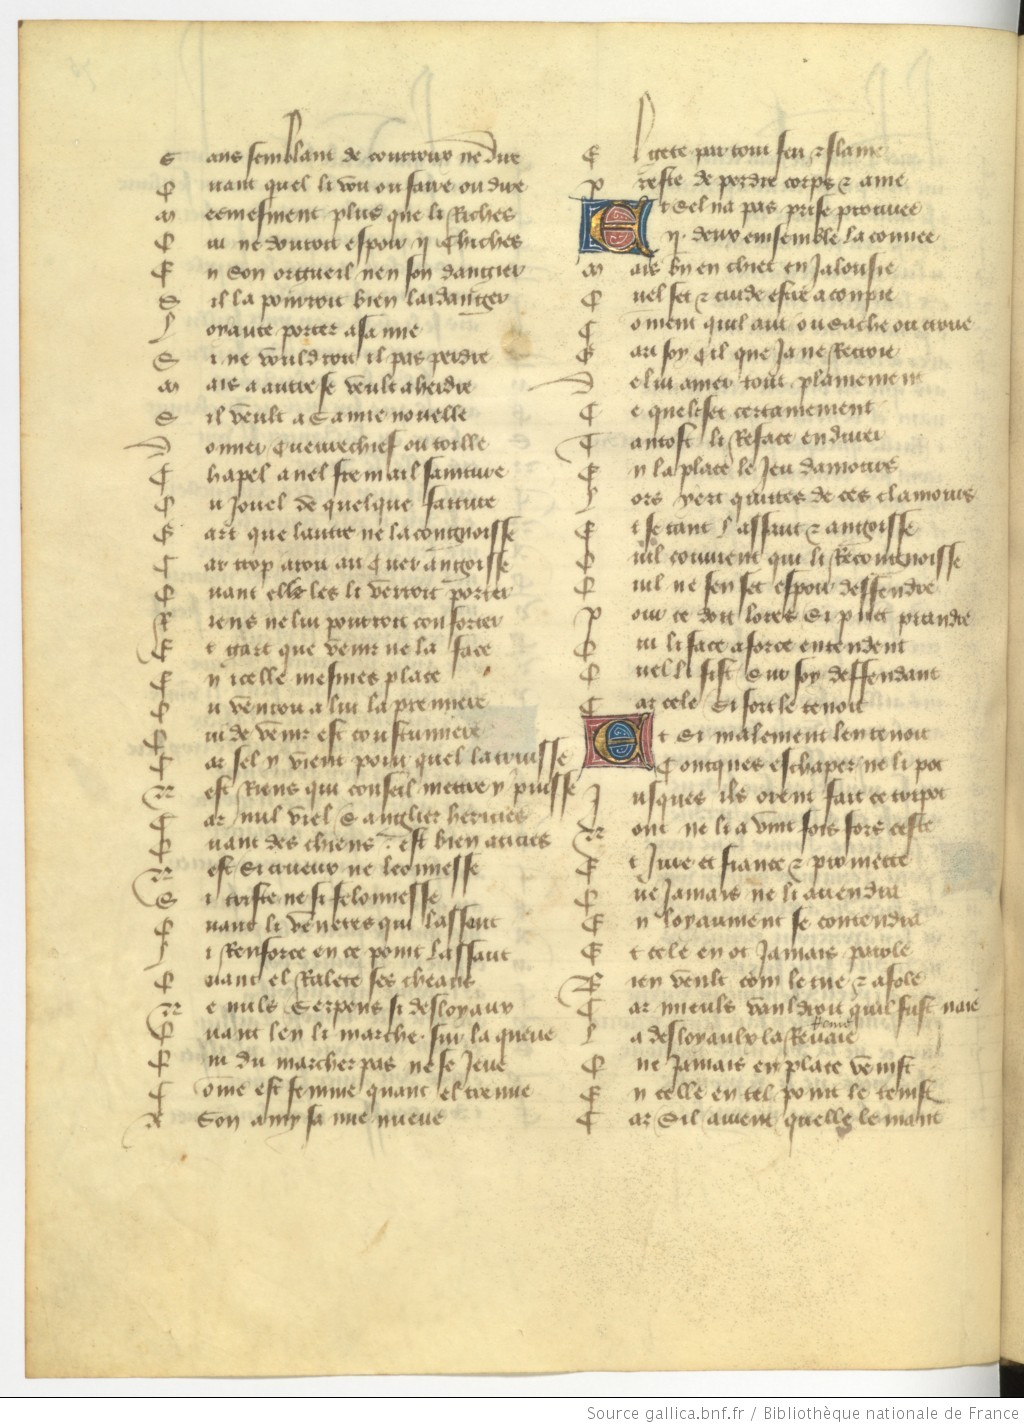 S ans semblant de courroux ne due
Q uant quel li voit ou faire ou dire
M eesmement plus que li Riches
Q ui ne doutoit espoir ij Chiches
E n son orgueil nen son dangier
S il la pourroit bien laidanger
L oyaute porter a sa mie
S i ne vouldroit il pas perdre
M ais a autre se veult aherdre
S il veult a sa mie nouvelle
D onner Queuvrechief ou toille
C hapel anel fremail sainture
O u Jouel de quelque faiture
G art que lautre ne la congnoisse
C ar trop aroit au Cuer angoisse
Q uant elle les li verroit porter
R iens ne lui pourroit conforter
E t gart que venir ne la face
E n icelle mesmes place
O u venoit a lui la premiere
Q ui de venir est coustumiere
C ar sel y vient pour quel la truisse
N est Riens qui conseil mettre y puisse
C ar nul viel sanglier hericies
Q uant des chiens est bien aticies
N est si crueux ne leonnesse
S i triste ne si felonnesse
Q uant li veneres qui lassaut
L i Renforce en ce point lassaut
Q uant el Ralete ses cheaus
N e nuls serpens si desloyaux
Q uant len li marche sur la queue
Q ui du marcher pas ne se Jeue
C ome est femme quant el treuve
A Son amy sa mie nueve
E l gete par tout feu et flame
P reste de perdre corps et ame
E t sel na pas prise prouvee
D eux ensemble la couvee
M ais bien en chiet en Jalousie
Q uel set et cuide estre acoupie
C oment quil aut ou sache ou croie
G art soy cil que Ja ne Recroie
D e lui amer tout plainement
C e quel set certainement
C antost li Reface endurer
E n la place le Jeu damours
L ors yert quittes de ces clamours
E t se tant lassaut et angoisse
Q uil couvient qui li Recongnoisse
Q uil ne sen set espoir deffendre
P our ce doit lores si puet prandre
Q ui li face a force entendent
Q uel li fist sur soy deffendant
C ar cele si fort le tenoit
E t si malement len tenoit
C onques eschaper ne li pot
J usques ils orent fait ce tripot
N ont ne li avint fois fors ceste
E t Jure et fiance et promette
Q ue Jamais ne li avendra
E n loyaument se contendra
E t cele en ot Jamais parole
B ien veult com le tue et afole
C ar mieuls vauldroit quil fust naie
L a desloyaulx la Renoie
Q ne Jamais en place venist
E n celle en tel point le tenist
C ar sil avient quelle le mant
Source gallica.bnf.fr / Bibliothèque nationale de France